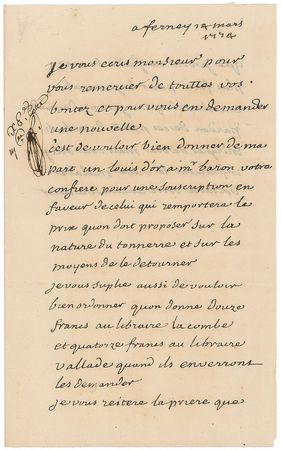 a ferney 12 mars
1774
je vous ecris monsieur pour
vous remercier de touttes vos
bontez et pour vous en demander
une nouvelle
c'est de vouloir bien donner de ma
part un louis d'or a mr baron votre
confrere pour une souscription en
faveur de celui qui remportera le
prix quon doit proposer sur la
nature du tonnerre et sur les
moyens de le detourner
je vous suplie aussi de vouloir
bien ordonner quon donne douze
francs au libraire lacombe
et quatorze francs au libraire
vallade quand ils enverront
les demander
je vous reitere la priere que